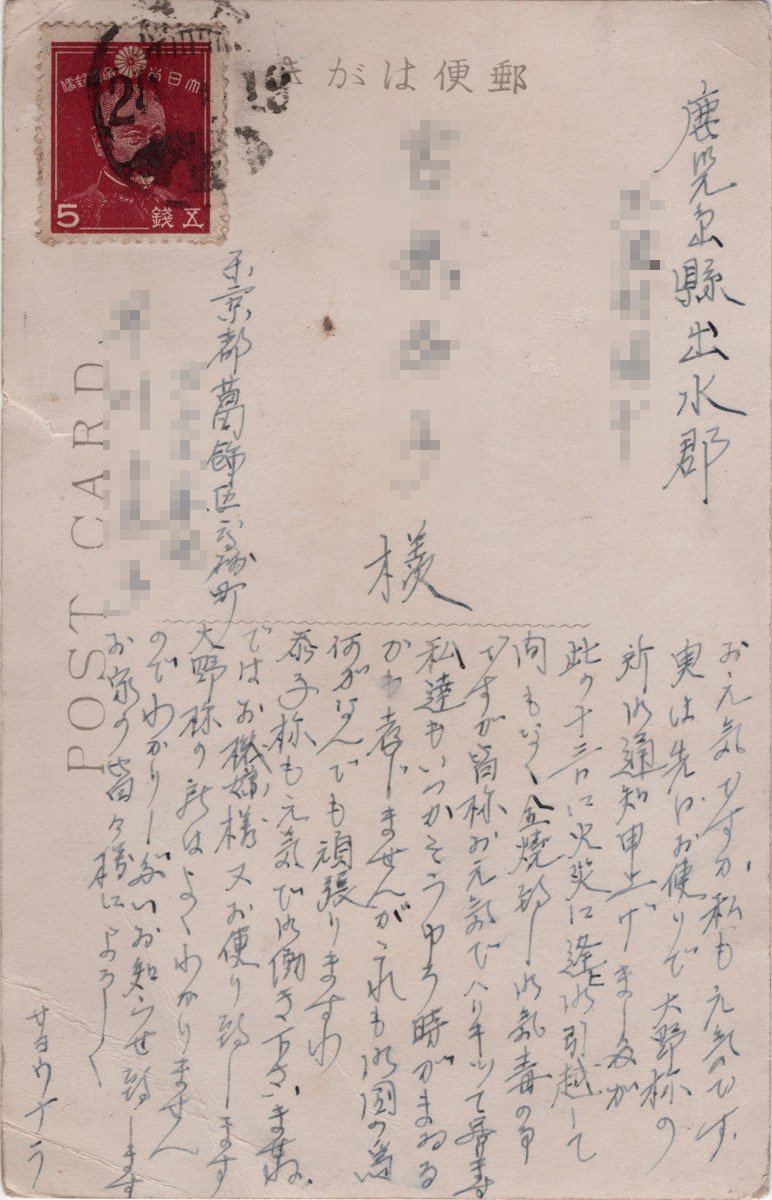 郵便はがき
大日本帝國郵便
五錢
5
20
19
POST CARD.
鹿児島縣出水郡
様
東京都葛飾区高砂町
お元気ですか私も元気のです
実は先のお便りで大野様の
所御通知申上げましたが
此の十三日に火災に逢と御引越して
間もなく全焼致し御気毒の事
ですが皆様お元気でハリキツて居ます
私達もいつかそうゆう時がまゐる
かも存じませんがこれも御国の為
何がなんでも頑張りますわ
泰子様も元気で御働き下さいませね
ではお機嫌様 又お便り致します
大野様の所はよくわかりません
のでわかりし次いお知らせ致します
お家の皆々様によろしく
サヨウナラ